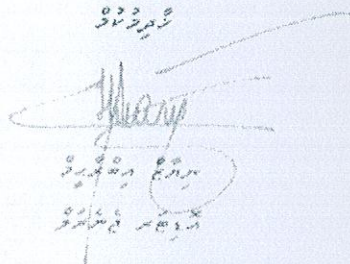 ޚާދިމުކުމް
ނިޔާޒް އިބްރާހީމް
އޮޑިޓަރ ޖެނެރަލް